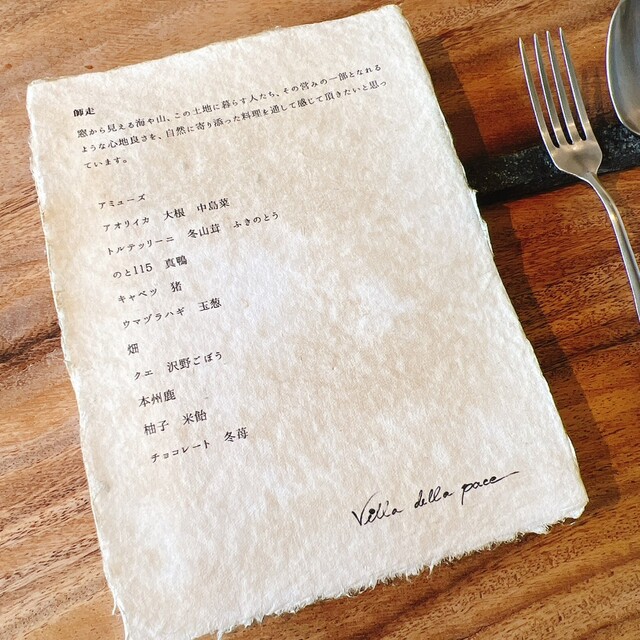 師走
窓から見える海や山、この土地に暮らす人たち、その営みの一部となれる
ような心地良さを、自然に寄り添った料理を通して感じて頂きたいと思っ
ています。
アミューズ
アオリイカ 大根 中島菜
トルテッリーニ 冬山茸 ふきのとう
のと115 真鴨
キャベツ 猪
ウマヅラハギ 玉葱
畑
クエ 沢野ごぼう
本州鹿
柚子 米飴
チョコレート 冬苺
Villa della pace